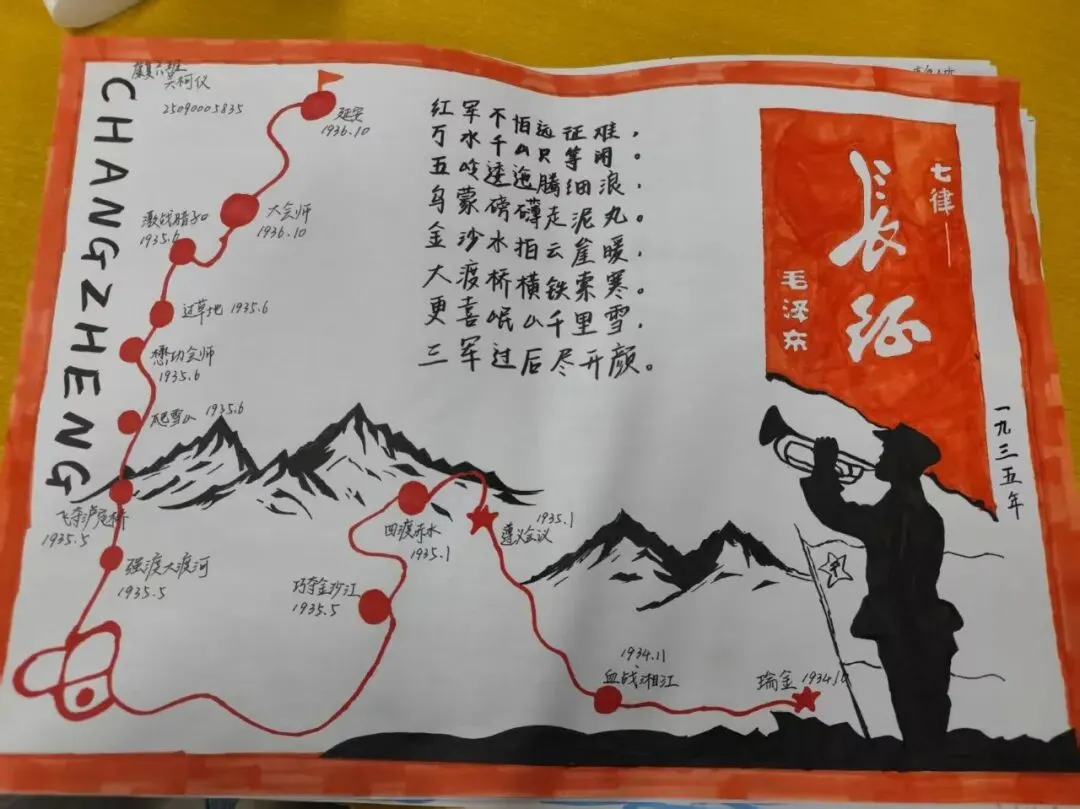 CHANGZHENG
25090005835
延安
1936.10
大会师
1936.10
激战腊子口
1935.6
过草地 1935.6
懋功会师
1935.6
爬雪山 1935.6
飞夺泸定桥
1935.5
强渡大渡河
1935.5
巧夺金沙江
1935.5
四渡赤水
1935.1
1935.1
遵义会议
1934.11
血战湘江
瑞金 1934.10
红军不怕远征难，
万水千山只等闲。
五岭逶迤腾细浪，
乌蒙磅礴走泥丸。
金沙水拍云崖暖，
大渡桥横铁索寒。
更喜岷山千里雪，
三军过后尽开颜。
七律——
长征
毛泽东
一九三五年